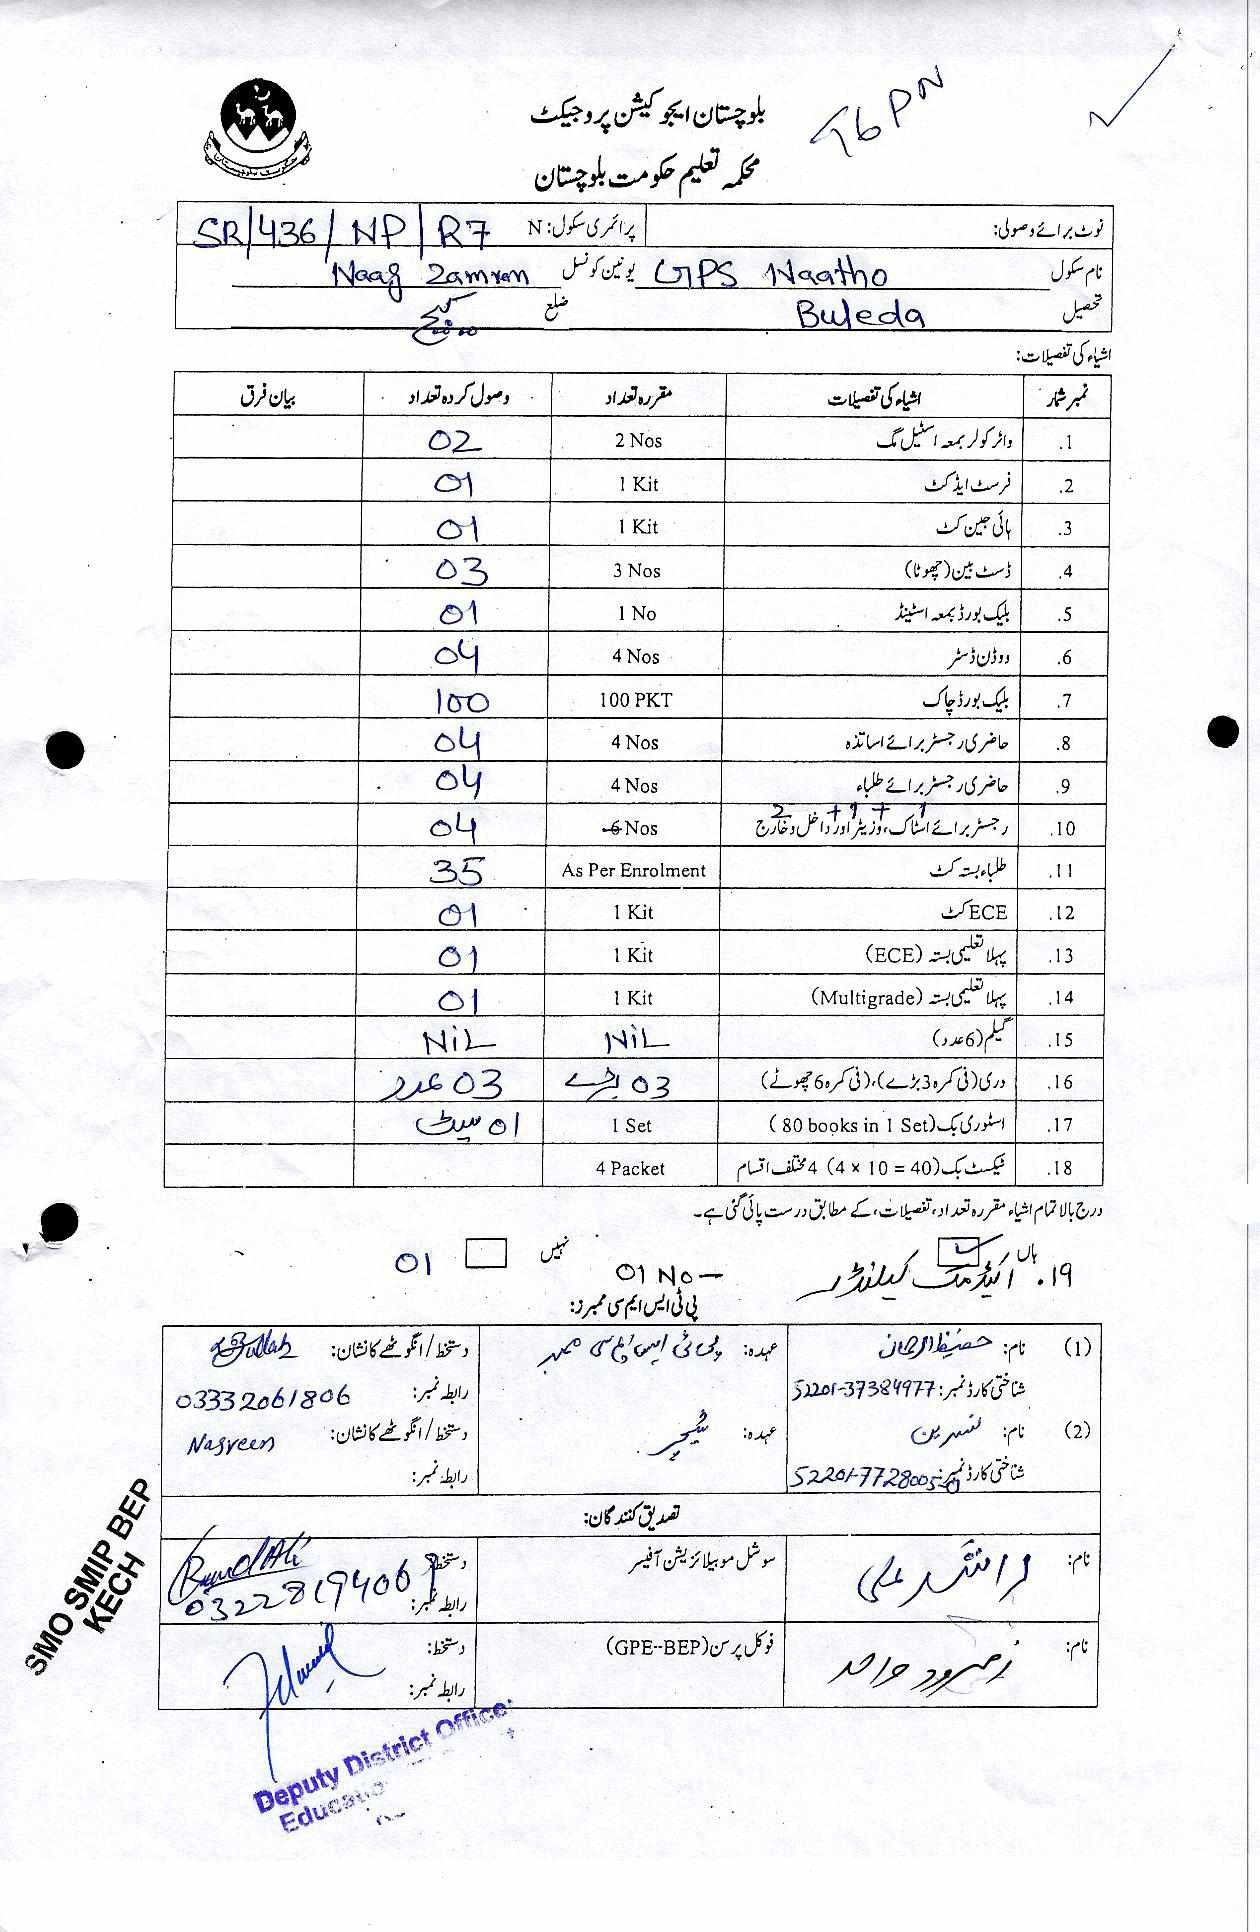 بلوچستان ایجوکیشن پروجیکٹ
محکمہ تعلیم حکومت بلوچستان
نوٹ برائے وصولی: پرائمری سکول: N SR/436/NP/R7
نام سکول GPS Naatho یونین کونسل Naag Zamran
تحصیل Buleda ضلع کیچ
اشیاء کی تفصیلات:
نمبر شمار اشیاء کی تفصیلات مقررہ تعداد وصول کردہ تعداد بیان فرق
1. واٹر کولر بمعہ اسٹیل مگ 2 Nos 02
2. فرسٹ ایڈ کٹ 1 Kit 01
3. ہائی جین کٹ 1 Kit 01
4. ڈسٹ بین (چھوٹا) 3 Nos 03
5. بلیک بورڈ بمعہ اسٹینڈ 1 No 01
6. ووڈن ڈسٹر 4 Nos 04
7. بلیک بورڈ چاک 100 PKT 100
8. حاضری رجسٹر برائے اساتذہ 4 Nos 04
9. حاضری رجسٹر برائے طلباء 4 Nos 04
1 + 1 + 2
10. رجسٹر برائے اسٹاک، وزیٹر اور داخل و خارج 6 Nos 04
11. طلباء بستہ کٹ As Per Enrolment 35
12. ECE کٹ 1 Kit 01
13. پہلا تعلیمی بستہ (ECE) 1 Kit 01
14. پہلا تعلیمی بستہ (Multigrade) 1 Kit 01
15. گلیم (6 عدد) NiL NiL
16. دری (فی کمرہ 3 بڑے)، (فی کمرہ 6 چھوٹے) 03 بڑے 03 عدد
17. اسٹوری بک (80 books in 1 Set) 1 Set 01 سیٹ
18. ٹیکسٹ بک (4 × 10 = 40) 4 مختلف اقسام 4 Packet
درج بالا تمام اشیاء مقررہ تعداد، تفصیلات، کے مطابق درست پائی گئی ہے۔
ہاں نہیں
۱۹. اکیڈمک کیلنڈر 01 No 01
پی ٹی ایس ایم سی ممبرز:
(1) نام: حفیظ الرحمان عہدہ: پی ٹی ایس ایم سی ممبر دستخط/انگوٹھے کا نشان:
شناختی کارڈ نمبر: 52201-37384977 رابطہ نمبر: 03332061806
(2) نام: نسرین عہدہ: ٹیچر دستخط/انگوٹھے کا نشان: Nasreen
شناختی کارڈ نمبر: رابطہ نمبر:
تصدیق کنندگان:
نام: سوشل موبیلائزیشن آفیسر دستخط:
رابطہ نمبر:
نام: فوکل پرسن (GPE-BEP) دستخط:
رابطہ نمبر:
SMO SMIP BEP
KECH
Deputy District Office